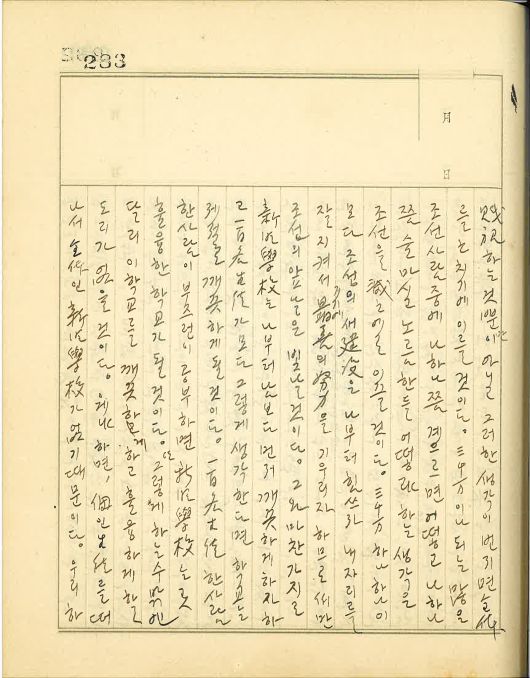 283
月
日
하는 것 뿐이 아닐 그러한 생각이 번지면 全体
를 는 치기에 이를 것이다. 三千万이나 되는 많은
조선 사람 중에 나 하나쯤 게으르면 어떻고 나 하나
쯤 술 마실 노름한들 어떻랴 하는 생각은
조선을 게 할 것이다. 三千万 하나하나이
모다 조선의 새 建設을 나부터 힘쓰라 내 자리를
잘 지켜서 의 努力을 기우리자 하므로써만
조선의 앞날은 빛날 것이다. 그와 마찬가지로
新 學校는 나부터 남보다 먼저 깨끗하게 하자 하
고 一百名 生徒가 모다 그렇게 생각한다면 학교는
깨끗하게 될 것이다. 一百名 生徒 한 사람
한 사람이 부즈런이 공부하면 新 學校는 곳
훌융한 학교가 될 것이다. 그렇게 하는 수 밖엔
달리 이 학교를 깨끗하게 하고 훌융하게 할
도리가 없을 것이다. 웨냐하면, 個人 生徒를 떠
나서 全体인 新 學校가 없기 때문이다. 우리 하